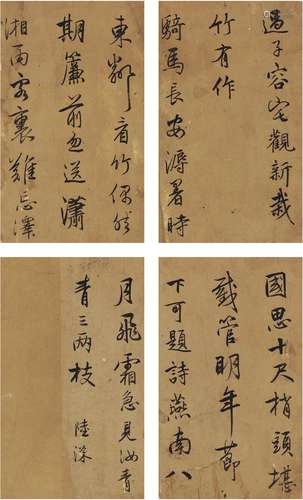 過子容宅觀新栽
竹有作
騎馬長安溽暑時
東鄰看竹偶然
期簾前忽送瀟
湘雨客裏難忘澤
國思十尺梢頭堪
截管明年節
下可題詩燕南八
月飛霜急見汝青
青三兩枝 陸深